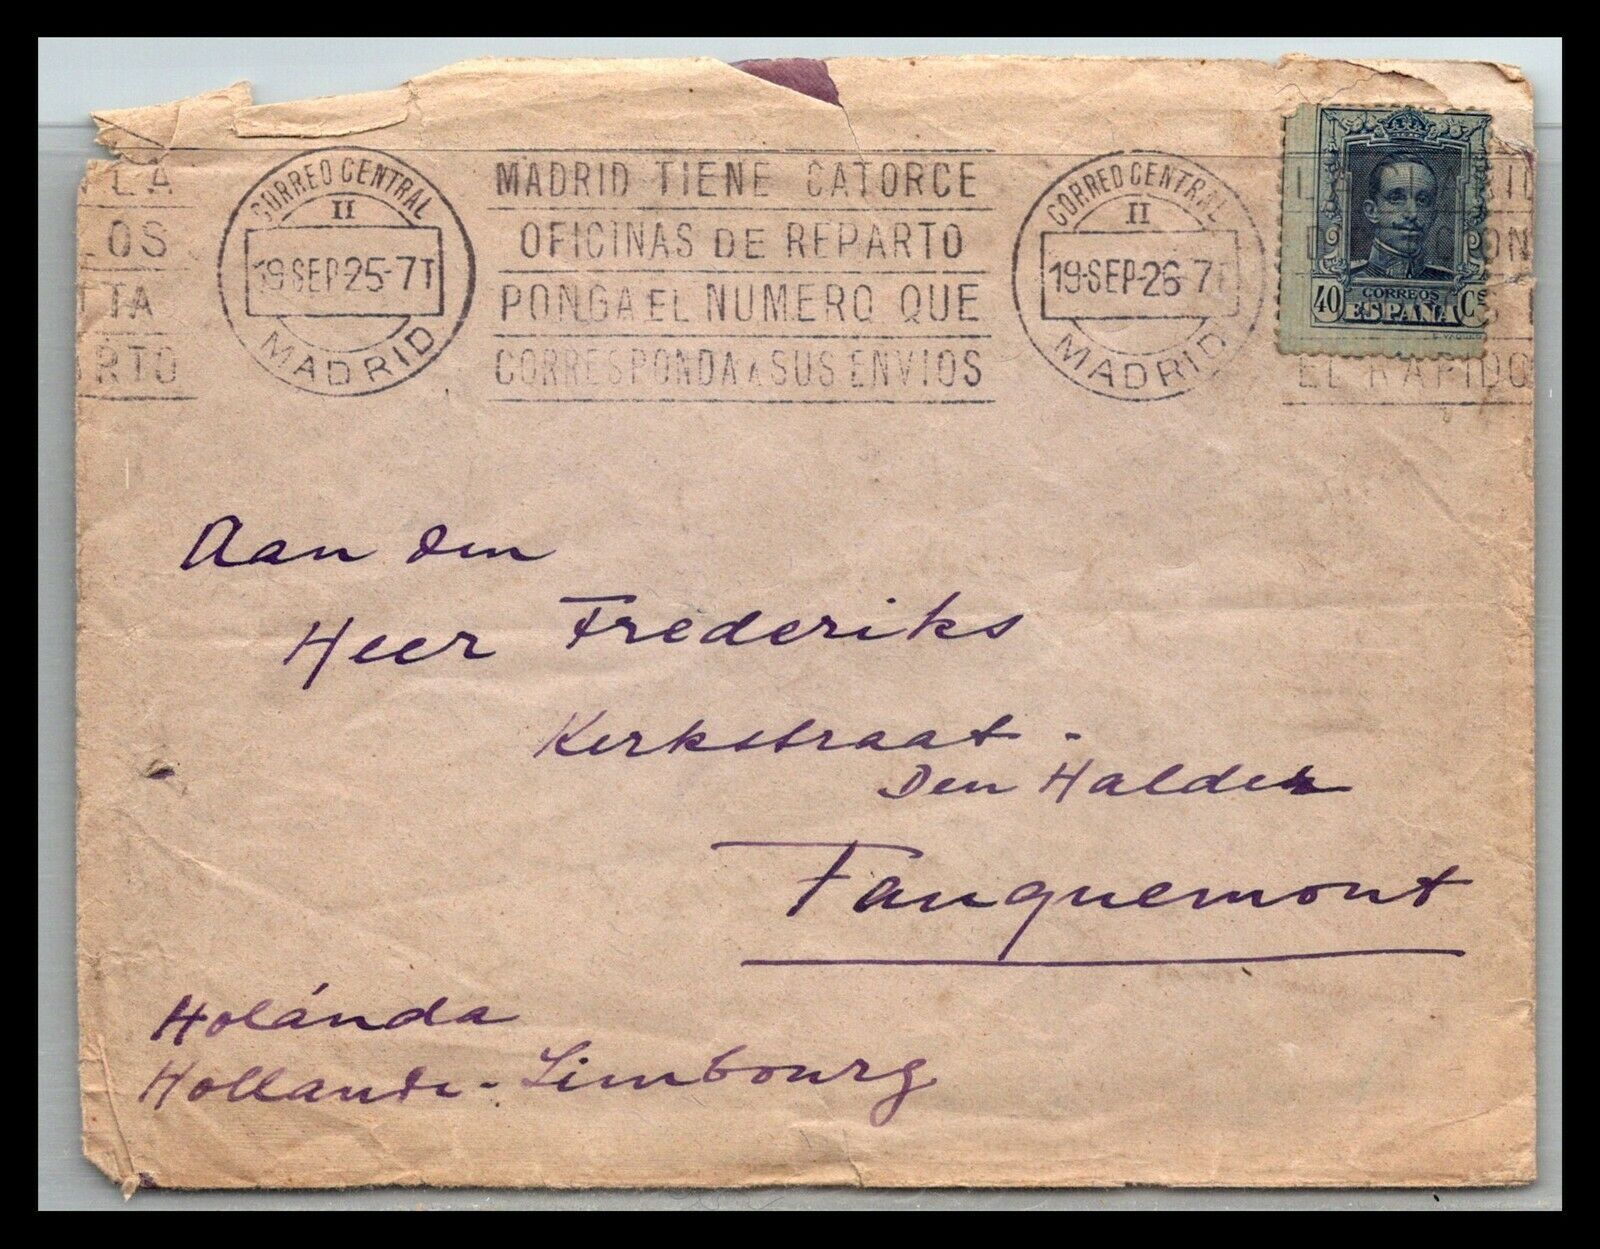 CORREO CENTRAL
II
19·SEP·25·7T
MADRID
MADRID TIENE CATORCE
OFICINAS DE REPARTO
PONGA EL NUMERO QUE
CORRESPONDA A SUS ENVIOS
CORREO CENTRAL
II
19·SEP·26·7T
MADRID
LOS
EL RAPIDO
40 CORREOS Cs
ESPAÑA
Aan den
Heer Frederiks
Kerkstraat -
Den Halder
Fauquemont
Holánda
Hollande - Limbourg